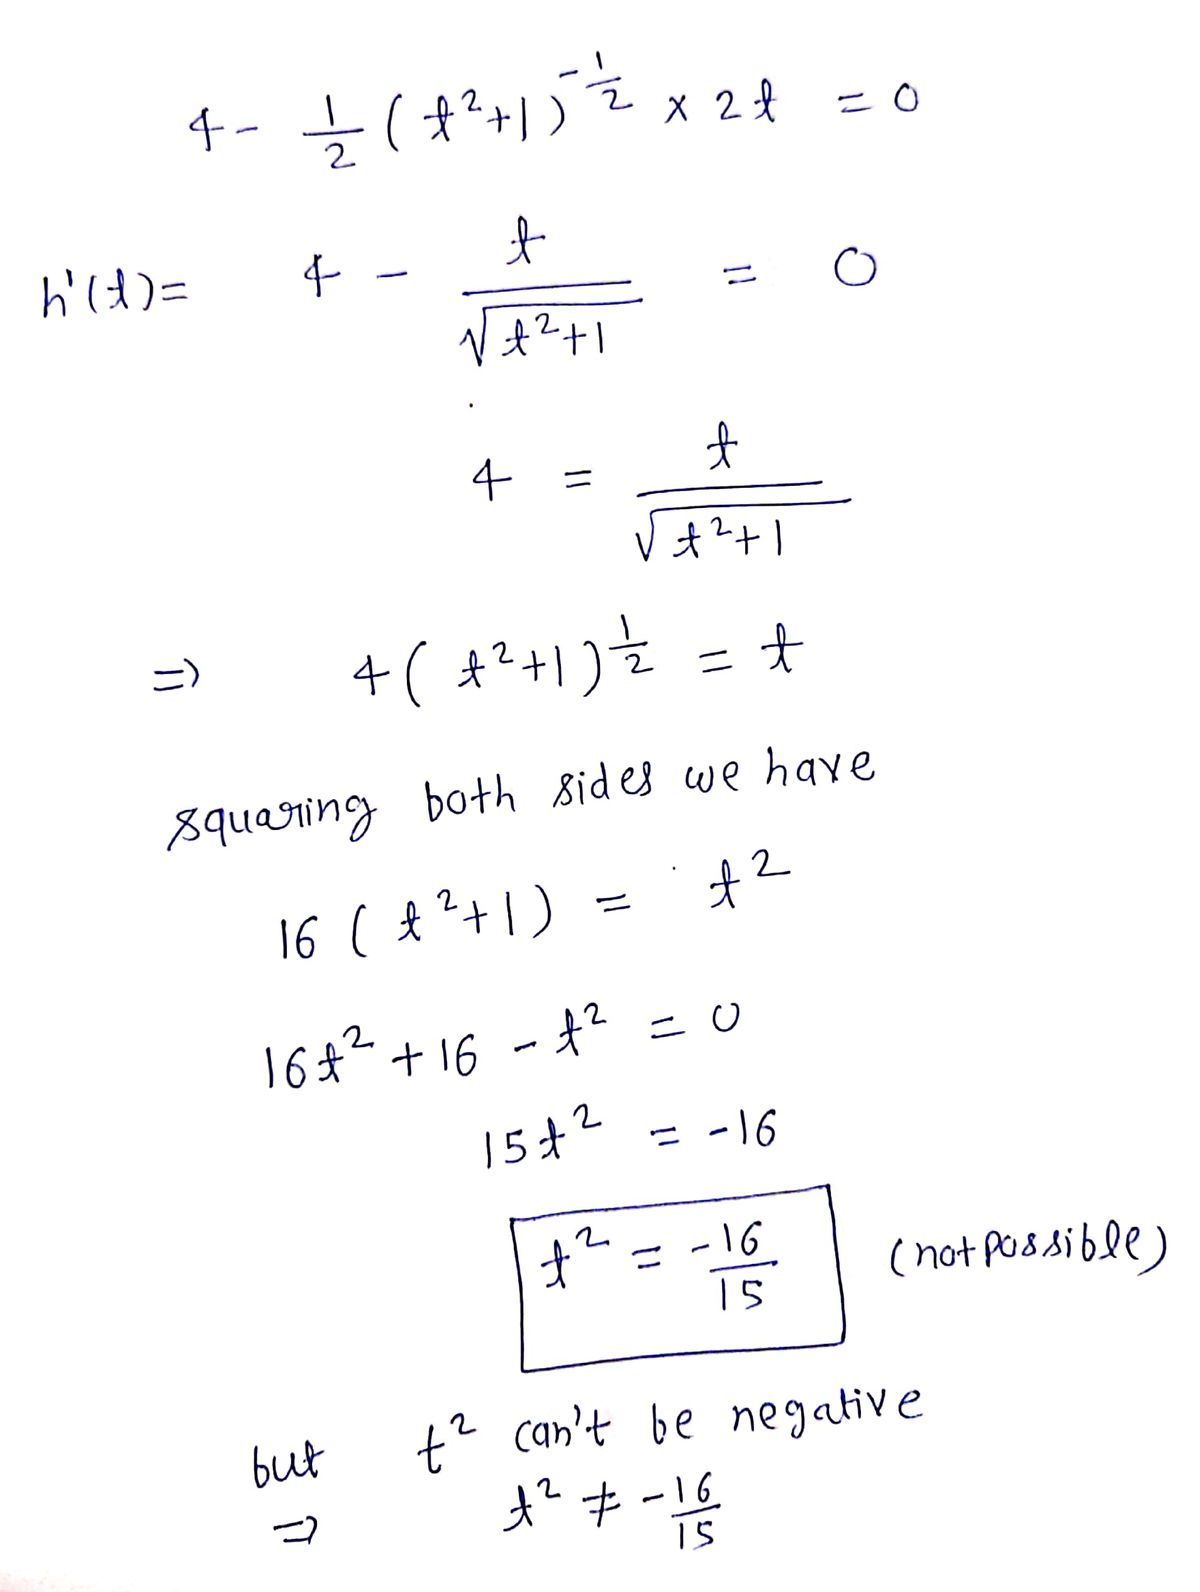 4 - 1/2 (t²+1)^(-1/2) × 2t = 0
h'(t) = 4 - t/√(t²+1) = 0
4 = t/√(t²+1)
⇒ 4(t²+1)^(1/2) = t
squaring both sides we have
16(t²+1) = t²
16t² + 16 - t² = 0
15t² = -16
t² = -16/15 (not possible)
but t² can't be negative
⇒ t² ≠ -16/15